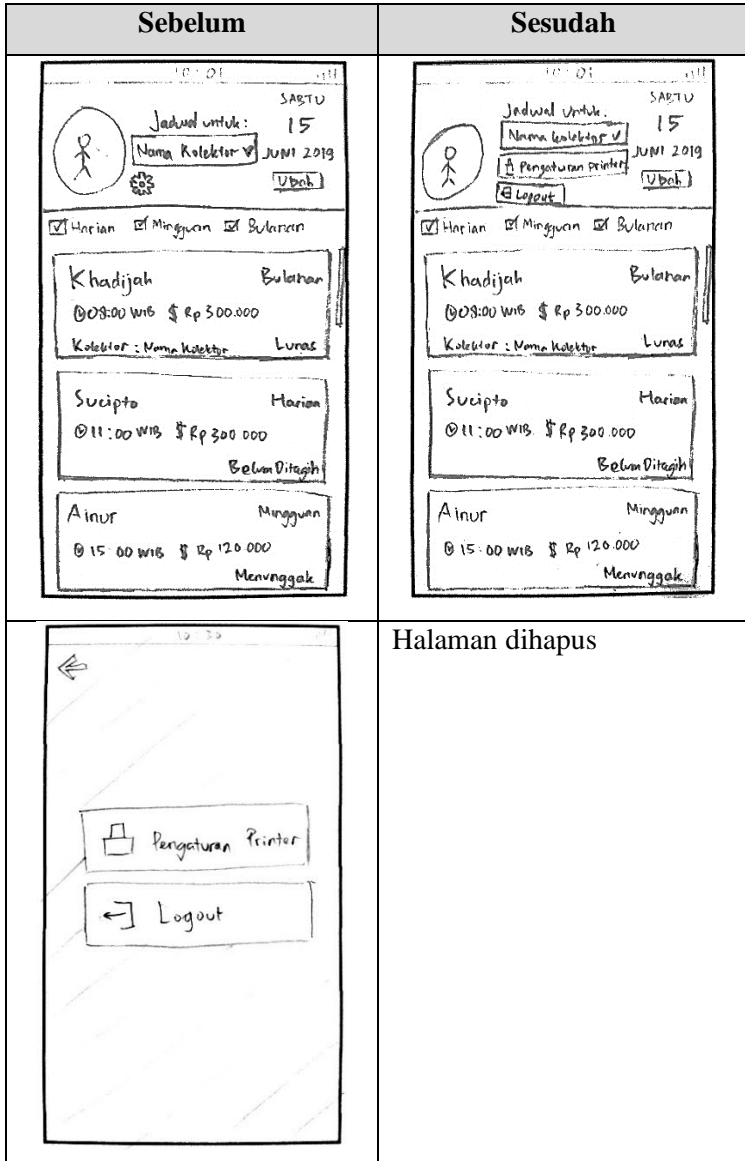 Sebelum
Sesudah
10:01
SABTU
Jadwal untuk:
15
Nama Kolektor
JUNI 2019
Ubah
Harian Mingguan Bulanan
Khadijah Bulanan
08:00 WIB $ Rp 300.000
Kolektor : Nama Kolektor Lunas
Sucipto Harian
11:00 WIB $ Rp 300 000
Belum Ditagih
Ainur Mingguan
15:00 WIB $ Rp 120.000
Menunggak
10:01
SABTU
Jadwal untuk:
15
Nama kolektor
JUNI 2019
Pengaturan printer
Ubah
Logout
Harian Mingguan Bulanan
Khadijah Bulanan
08:00 WIB $ Rp 300.000
Kolektor : Nama Kolektor Lunas
Sucipto Harian
11:00 WIB $ Rp 300 000
Belum Ditagih
Ainur Mingguan
15:00 WIB $ Rp 120.000
Menunggak
10:30
Pengaturan Printer
Logout
Halaman dihapus